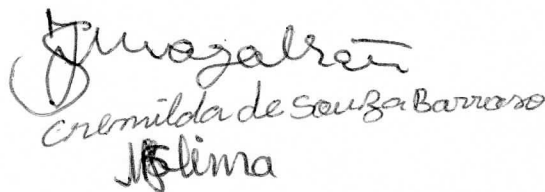 Magalhães
Cremilda de Souza Barroso
Lima